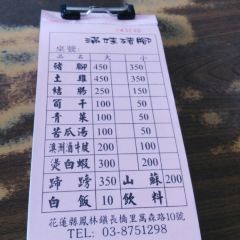 滿妹豬腳
桌號
品名 大 小
豬腳 450 350
土雞 450 350
結腸 250 150
筍干 100
青菜 100
苦瓜湯 100
澳洲牛小排 200
燙白蝦 300
蹄膀 350 山蘇 200
白飯 10 飲料
花蓮縣鳳林鎮長橋里萬森路10號
TEL: 03-8751298